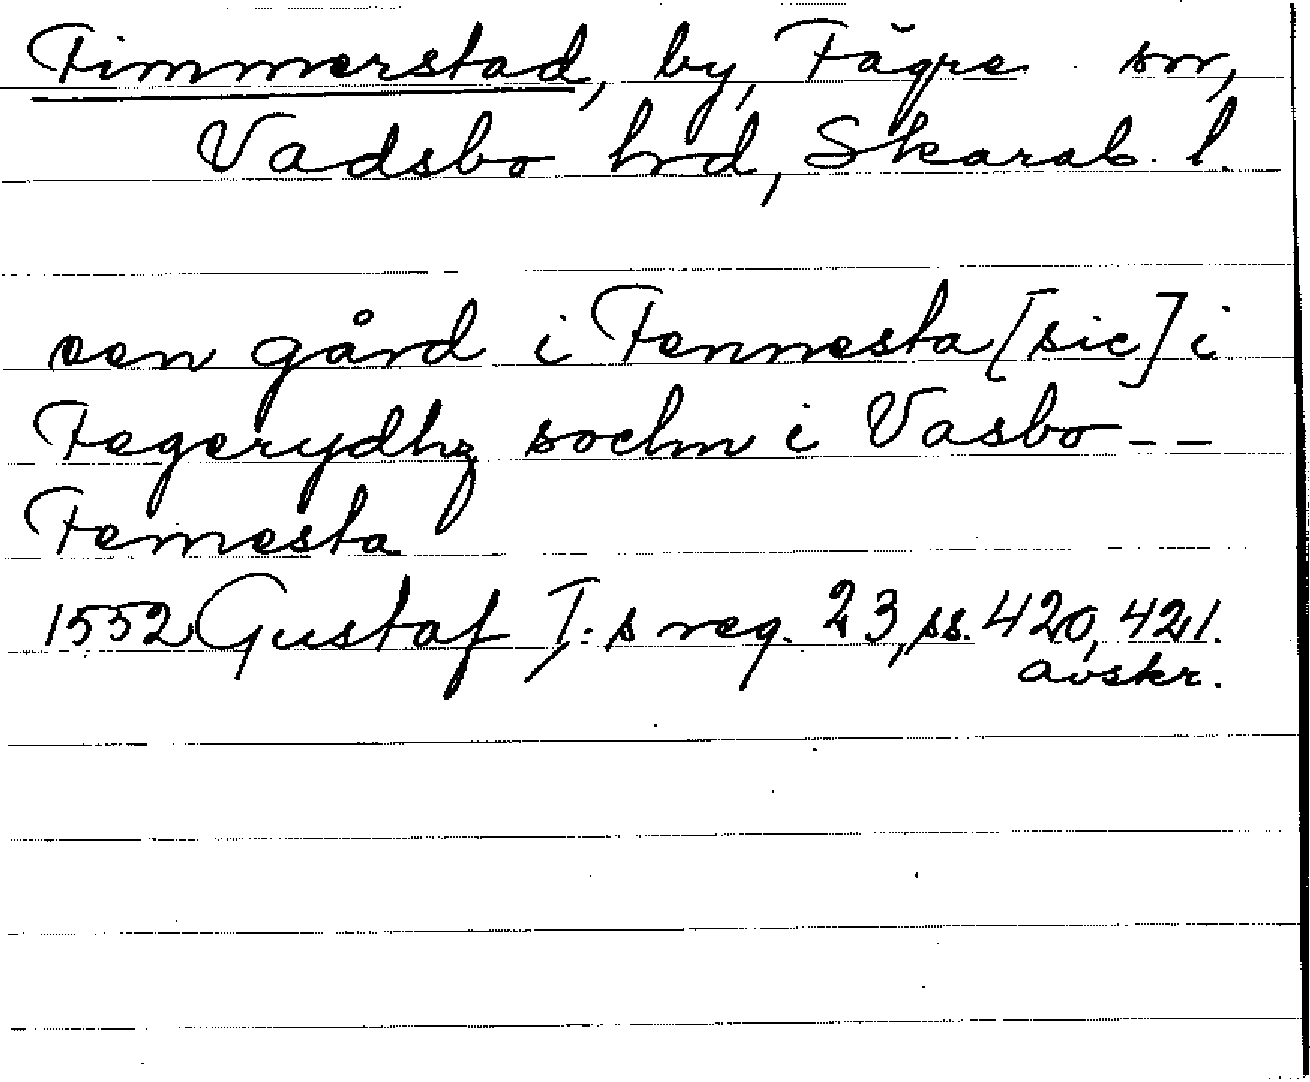 Fimmerstad, by, Fägre sn,
Vadsbo hrd, Skarab. l.
een gård i Fennesta [sic] i
Fegerydhz sochn i Vasbo --
Femesta
1552 Gustaf I:s reg. 23, ss. 420, 421.
avskr.